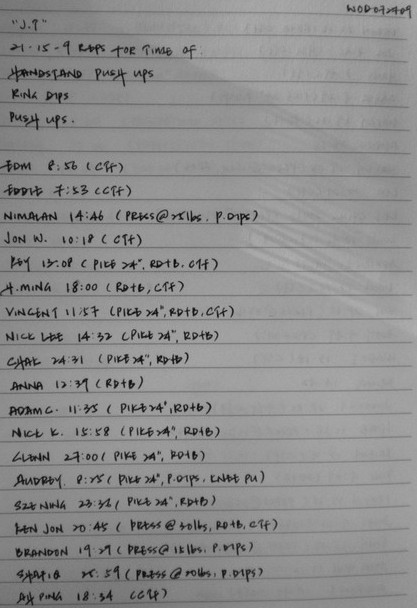 WOD 072909
"J.T"
21-15-9 REPS FOR TIME OF:
HANDSTAND PUSH UPS
RING DIPS
PUSH UPS.
EDM 8:56 (CTF)
EDDIE 7:53 (CTF)
NIMALAN 14:46 (PRESS@25lbs, P.DIPS)
JON W. 10:18 (CTF)
REY 13:08 (PIKE 24", RD+B, CTF)
H.MING 18:00 (RD+B, CTF)
VINCENT 11:57 (PIKE 24", RD+B, CTF)
NICK LEE 14:32 (PIKE 24", RD+B)
CHAK 24:31 (PIKE 24", RD+B)
ANNA 12:39 (RD+B)
ADAM C. 11:35 (PIKE 24", RD+B)
NICK K. 15:58 (PIKE 24", RD+B)
GLENN 27:00 (PIKE 24", RD+B)
AUDREY 8:25 (PIKE 24", P.DIPS, KNEE PU)
SZE NING (PIKE 24", RD+B)
BEN JON 20:45 (PRESS @ 30lbs, RD+B, CTF)
BRANDON 19:29 (PRESS@15lbs, P.DIPS)
SHAFIQ :59 (PRESS @ 20lbs, P.DIPS)
AH PING 18:34 (CTF)